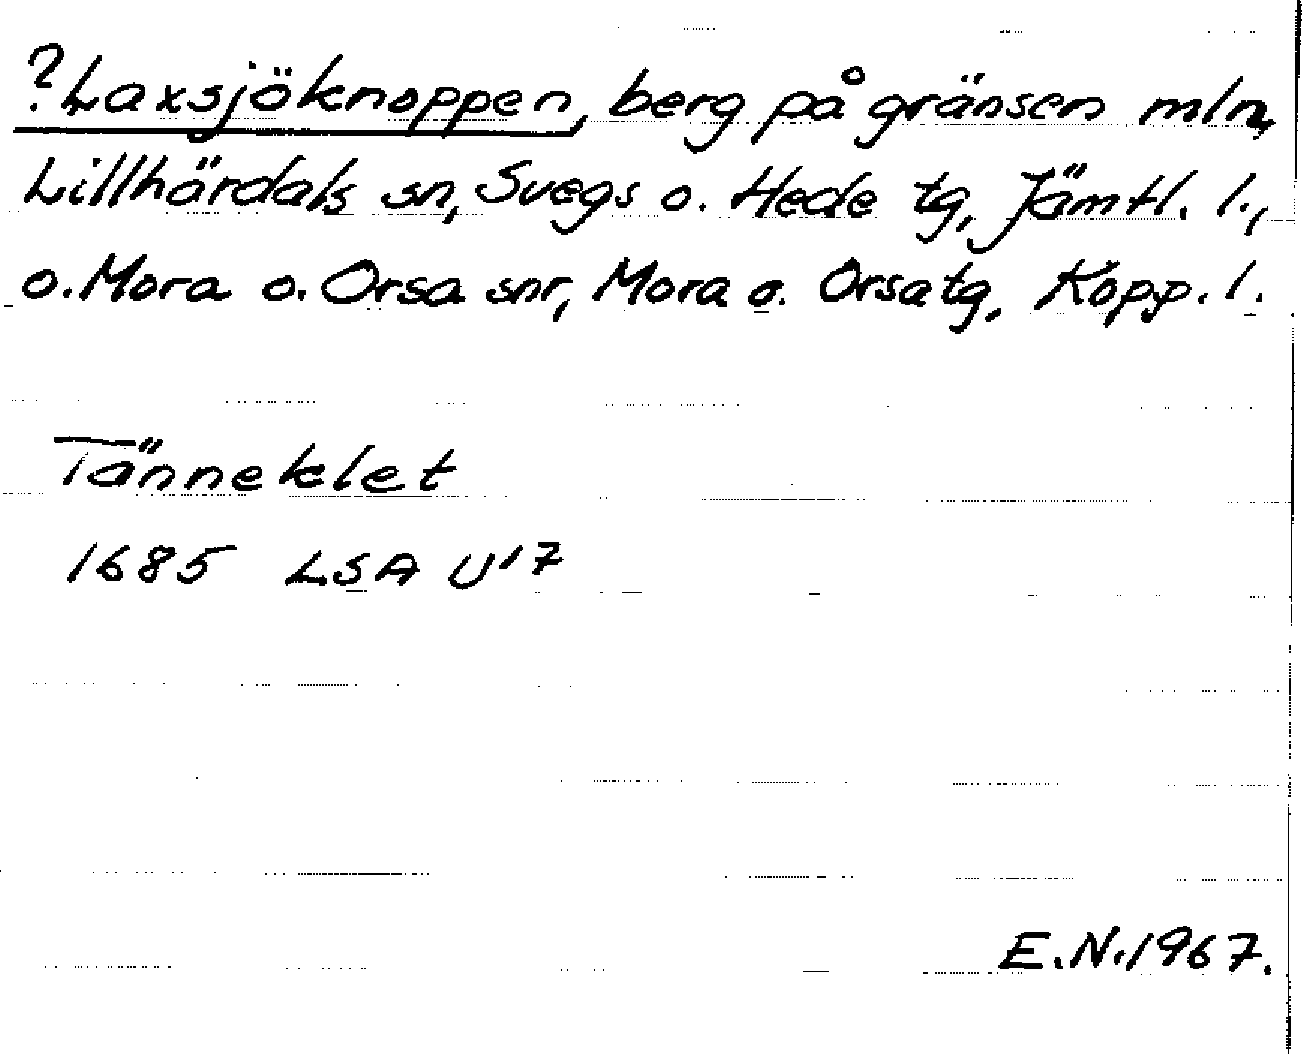 ?Laxsjöknoppen, berg på gränsen mln,
Lillhärdals sn, Svegs o. Hede tg, Jämtl. l.,
o. Mora o. Orsa snr, Mora o. Orsa tg, Kopp. l.
Tänneklet
1685 LSA U17
E.N. 1967.